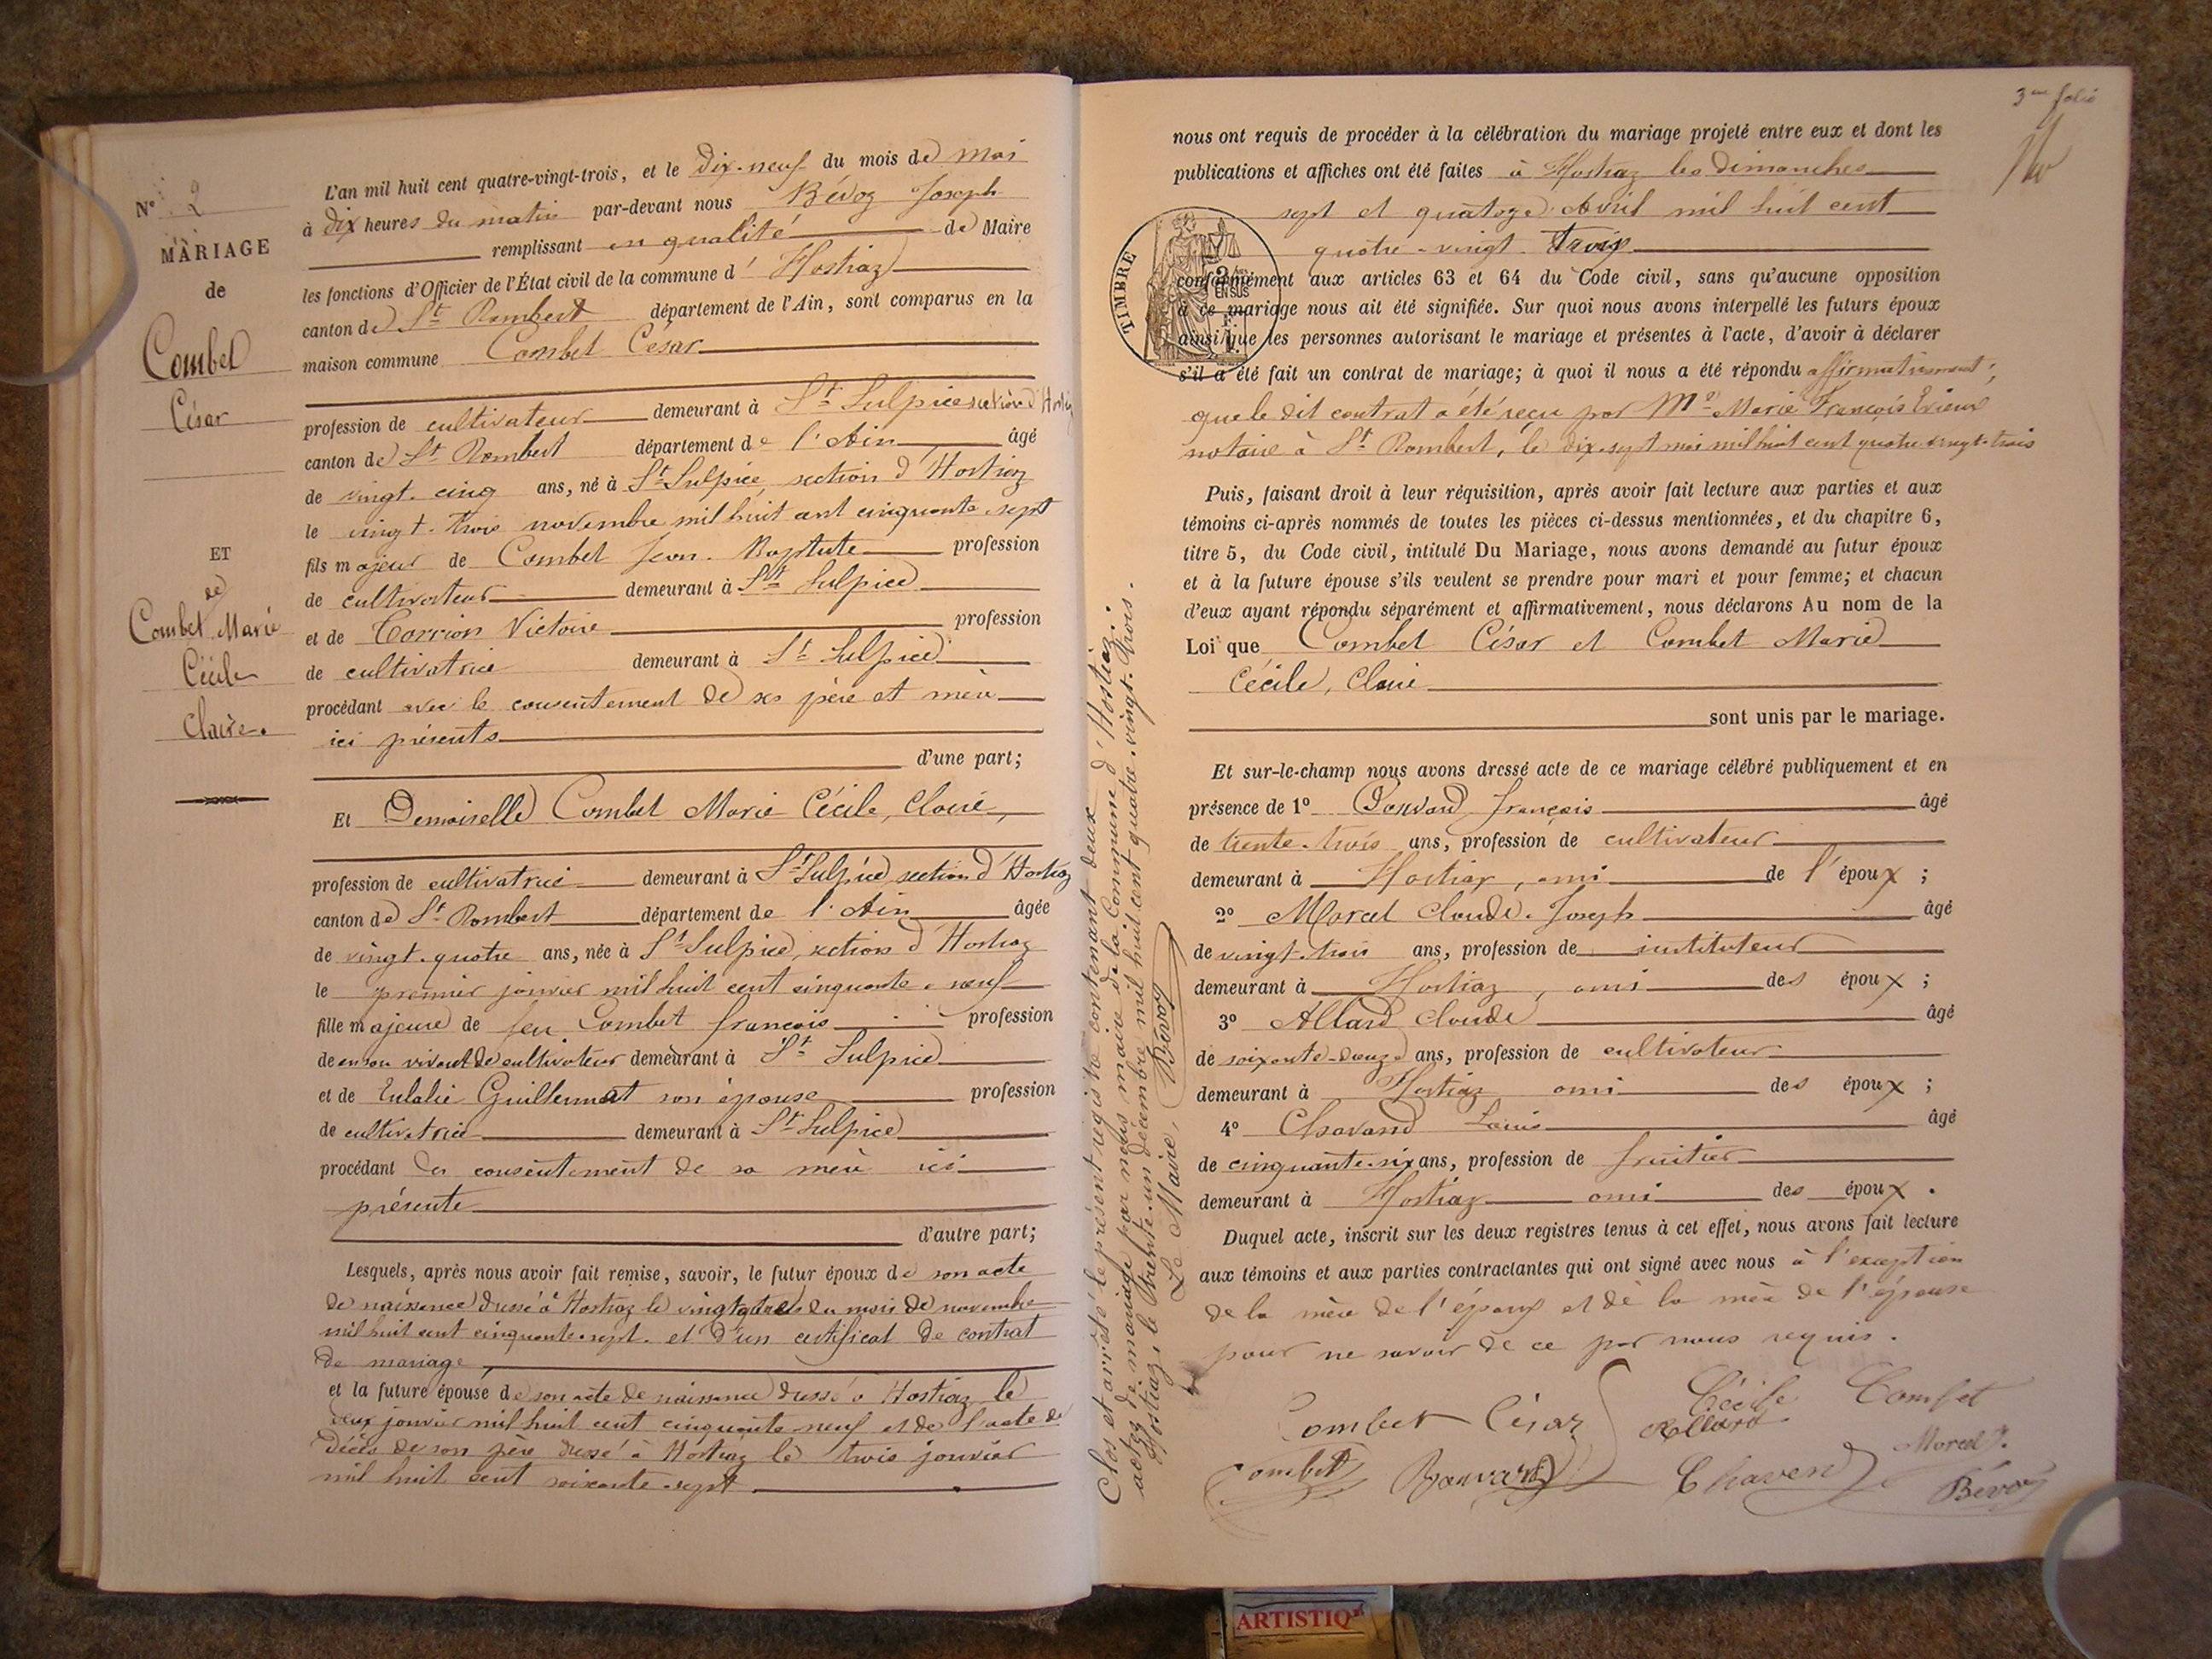 N° 2
MARIAGE
de
Combet
César
ET
de
Combet Marie
Cécile
Claire.
L'an mil huit cent quatre-vingt-trois, et le dix-neuf du mois de mai
à dix heures du matin par-devant nous Bévoz Joseph
remplissant en qualité de Maire
les fonctions d'Officier de l'État civil de la commune d' Hostiaz
canton de St Rambert département de l'Ain, sont comparus en la
maison commune Combet César
profession de cultivateur demeurant à St Sulpice section d'Hostiaz
canton de St Rambert département de l'Ain âgé
de vingt-cinq ans, né à St Sulpice, section d'Hostiaz
le vingt-trois novembre mil huit cent cinquante-sept
fils majeur de Combet Jean-Baptiste profession
de cultivateur demeurant à St Sulpice
et de Carrion Victoire profession
de cultivatrice demeurant à St Sulpice
procédant avec le consentement de ses père et mère
ici présents
d'une part;
Et Demoiselle Combet Marie Cécile, Claire,
profession de cultivatrice demeurant à St Sulpice section d'Hostiaz
canton de St Rambert département de l'Ain âgée
de vingt-quatre ans, née à St Sulpice, section d'Hostiaz
le premier janvier mil huit cent cinquante-neuf
fille majeure de feu Combet françois profession
de en son vivant de cultivateur demeurant à St Sulpice
et de Eulalie Guillermat son épouse profession
de cultivatrice demeurant à St Sulpice
procédant du consentement de sa mère ici
présente
d'autre part;
Lesquels, après nous avoir fait remise, savoir, le futur époux de son acte
de naissance dressé à Hostiaz le du mois de novembre
mil huit cent cinquante-sept. et d'un certificat de contrat
de mariage,
et la future épouse de son acte de naissance dressé à Hostiaz le
deux janvier mil huit cent cinquante-neuf et de l'acte de
décès de son père dressé à Hostiaz le trois janvier
mil huit cent soixante-sept
Clos et arrêté le présent registre contenant deux
actes de mariage par nous maire de la Commune d'Hostiaz.
Hostiaz, le trente-un décembre mil huit cent quatre-vingt-trois.
Le Maire, Bévoz
3me folio
nous ont requis de procéder à la célébration du mariage projeté entre eux et dont les
publications et affiches ont été faites à Hostiaz les dimanches
sept et quatorze Avril mil huit cent
quatre-vingt-trois
TIMBRE
2/10es EN SUS
conformément aux articles 63 et 64 du Code civil, sans qu'aucune opposition
à ce mariage nous ait été signifiée. Sur quoi nous avons interpellé les futurs époux
ainsi que les personnes autorisant le mariage et présentes à l'acte, d'avoir à déclarer
s'il a été fait un contrat de mariage; à quoi il nous a été répondu affirmativement;
que le dit contrat a été reçu par Me Marie François
notaire à St Rambert, le dix-sept mai mil huit cent quatre-vingt-trois
Puis, faisant droit à leur réquisition, après avoir fait lecture aux parties et aux
témoins ci-après nommés de toutes les pièces ci-dessus mentionnées, et du chapitre 6,
titre 5, du Code civil, intitulé Du Mariage, nous avons demandé au futur époux
et à la future épouse s'ils veulent se prendre pour mari et pour femme; et chacun
d'eux ayant répondu séparément et affirmativement, nous déclarons Au nom de la
Loi que Combet César et Combet Marie
Cécile, Claire
sont unis par le mariage.
Et sur-le-champ nous avons dressé acte de ce mariage célébré publiquement et en
présence de 1° françois âgé
de trente-trois ans, profession de cultivateur
demeurant à Hostiaz, ami de l'époux;
2° Marcel Claude-Joseph âgé
de vingt-trois ans, profession de instituteur
demeurant à Hostiaz, ami des époux;
3° Allard Claude âgé
de soixante-douze ans, profession de cultivateur
demeurant à Hostiaz ami des époux;
4° Chavand Louis âgé
de cinquante-six ans, profession de fruitier
demeurant à Hostiaz ami des époux.
Duquel acte, inscrit sur les deux registres tenus à cet effet, nous avons fait lecture
aux témoins et aux parties contractantes qui ont signé avec nous à l'exception
de la mère de l'époux et de la mère de l'épouse
pour ne savoir de ce par nous requis.
Combet César Cécile Combet
Allard
Marcel J.
Combet Chavend
Bévoz
ARTISTIQ